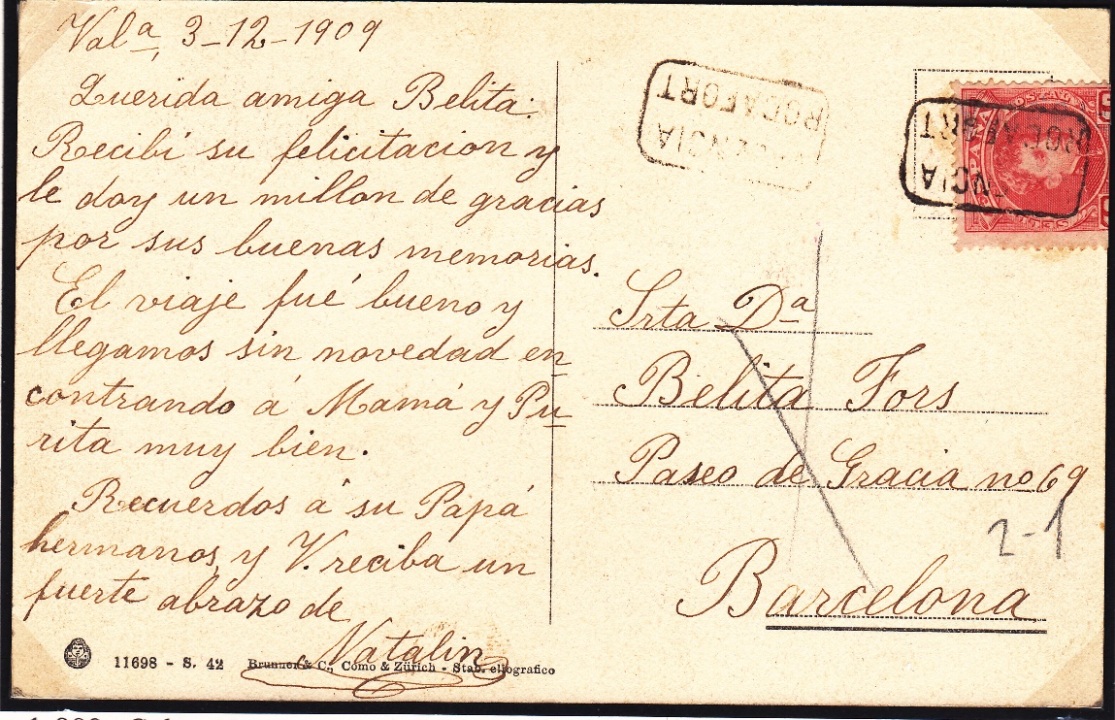 Valª 3-12-1909
Querida amiga Belita:
Recibí su felicitacion y
le doy un millon de gracias
por sus buenas memorias.
El viaje fué bueno y
llegamos sin novedad en
contrando á Mamá y Pu
rita muy bien.
Recuerdos á su Papá
hermanos, y V. reciba un
fuerte abrazo de
Natalin
11698 - S. 42 Brunner & C., Como & Zürich - Stab. eliografico
VALENCIA
ROCAFORT
VALENCIA
ROCAFORT
Srta Dª
Belita Fors
Paseo de Gracia nº 69
2-1
Barcelona